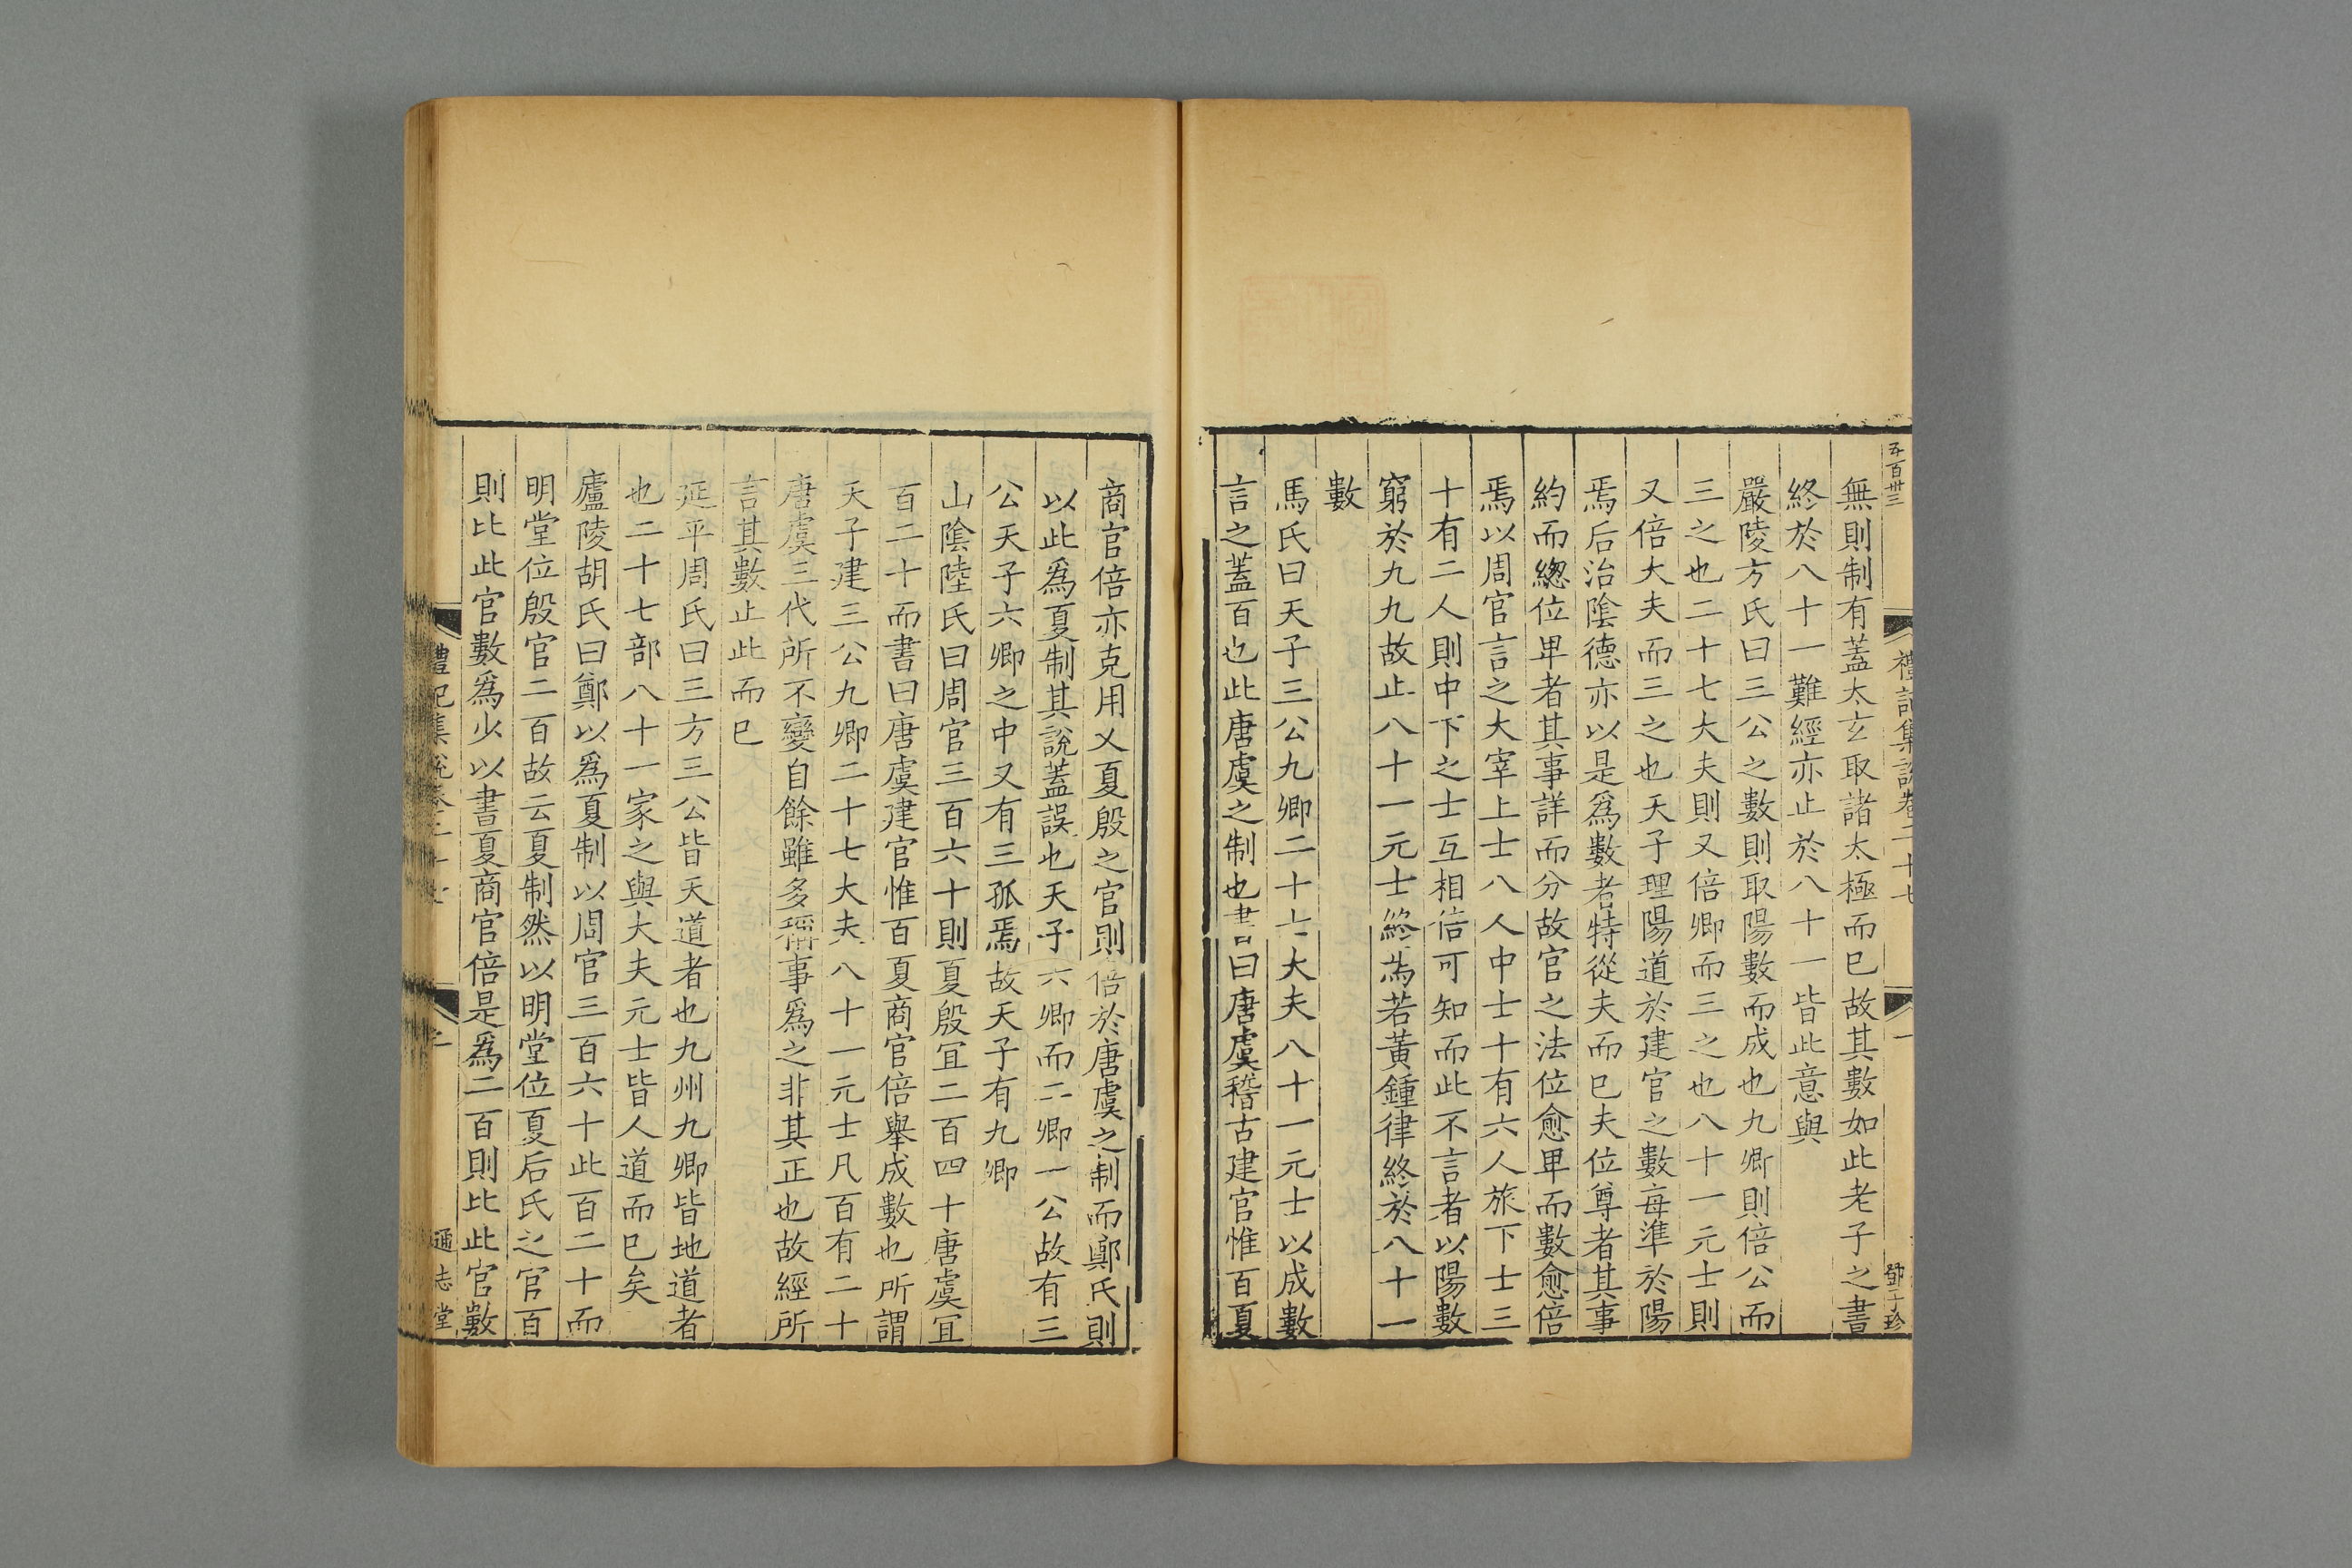 五百卅三
禮記集說卷二十七
一
鄧珍
無則制有蓋太玄取諸太極而已故其數如此老子之書
終於八十一難經亦止於八十一皆此意與
嚴陵方氏曰三公之數則取陽數而成也九卿則倍公而
三之也二十七大夫則又倍卿而三之也八十一元士則
又倍大夫而三之也天子理陽道於建官之數每準於陽
焉后治陰德亦以是爲數者特從夫而已夫位尊者其事
約而緫位畢者其事詳而分故官之法位愈畢而數愈倍
焉以周官言之大宰上士八人中士十有六人旅下士三
十有二人則中下之士互相倍可知而此不言者以陽數
窮於九九故止八十一元士終焉若黃鍾律終於八十一
數
馬氏曰天子三公九卿二十七大夫八十一元士以成數
言之蓋百也此唐虞之制也書曰唐虞稽古建官惟百夏
商官倍亦克用乂夏殷之官則倍於唐虞之制而鄭氏則
以此爲夏制其說蓋誤也天子六卿而二卿一公故有三
公天子六卿之中又有三孤焉故天子有九卿
山陰陸氏曰周官三百六十則夏殷宜二百四十唐虞宜
百二十而書曰唐虞建官惟百夏商官倍舉成數也所謂
天子建三公九卿二十七大夫八十一元士凡百有二十
唐虞三代所不變自餘雖多稱事爲之非其正也故經所
言其數止此而已
延平周氏曰三方三公皆天道者也九州九卿皆地道者
也二十七部八十一家之與大夫元士皆人道而已矣
廬陵胡氏曰鄭以爲夏制以周官三百六十此百二十而
明堂位殷官二百故云夏制然以明堂位夏后氏之官百
則比此官數爲少以書夏商官倍是爲二百則比此官數
禮記集說卷二十七
二
通志堂